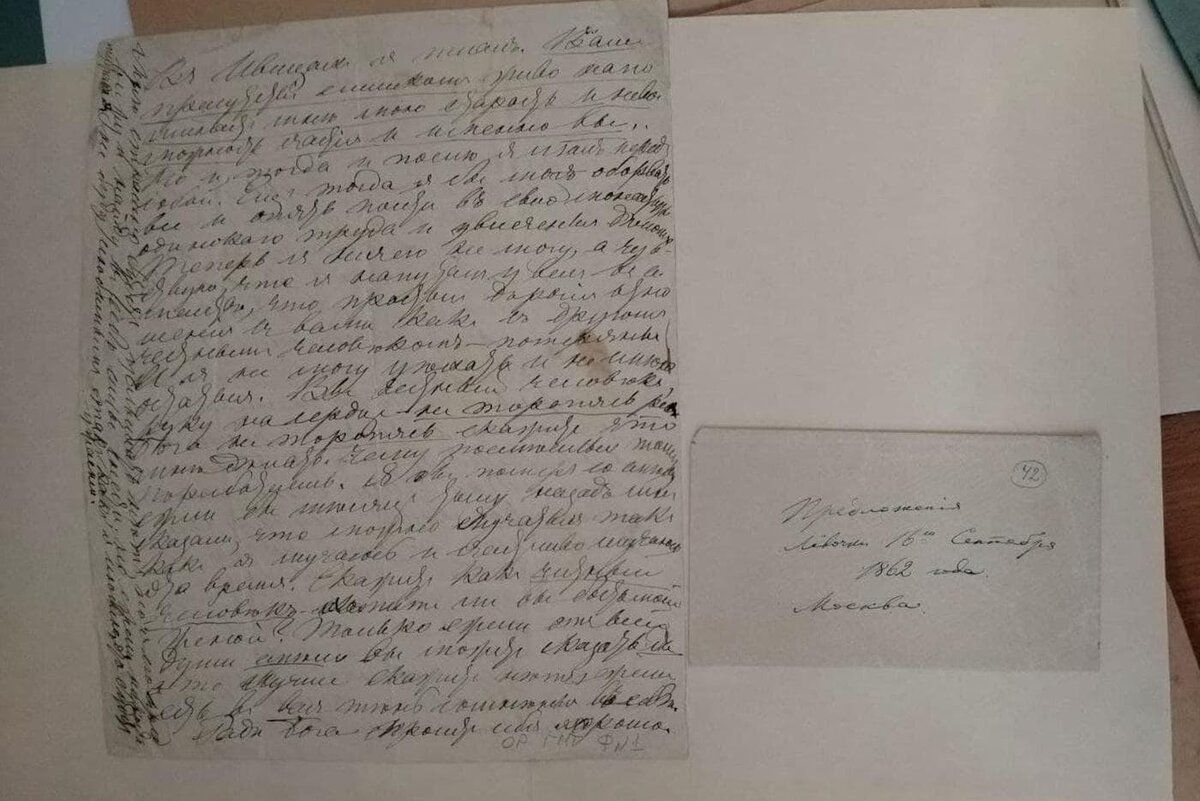 Въ Ивицахъ я писалъ. Ваше
присутствіе слишкомъ живо напо
минаетъ мнѣ мою старость и невоз
можность счастія и именно вы..
Но и тогда и послѣ я лгалъ передъ
собой. Еще тогда я бы могъ оборвать
все и опять пойти въ свой монастырь
одинокаго труда и увлеченья дѣломъ.
Теперь я ничего не могу, а чув-
ствую, что я напуталъ у васъ въ се
мействѣ, что простыя дорогія отно
шенія съ вами какъ съ другомъ
честнымъ человѣкомъ - потеряны.
И я не могу уѣхать и не смѣю
остаться. Вы честный человѣкъ,
руку на сердце - не торопясь, ради
Бога не торопясь скажите что
мнѣ дѣлать. Чему посмѣешься тому
поработаешь. Я бы померъ со смѣху
ежели бы мѣсяцъ тому назадъ мнѣ
сказали, что можно мучаться такъ
какъ я мучаюсь и счастливо мучаюсь
это время. Скажите какъ честный
человѣкъ - хотите ли вы быть моей
женой? Только ежели отъ всей
души смѣло вы можете сказать да
а то лучше скажите нѣтъ ежели
есть въ васъ тѣнь сомнѣнія въ себѣ.
Ради Бога спросите себя хорошо.
Мнѣ страшно будетъ услышать нѣтъ но я его
предвижу и найду въ себѣ силы снести. Но ежели никогда
мужемъ я не буду любимымъ такъ какъ я люблю это будетъ
ужасно!
ОР ГМТ Ф №1
42
Предложенія
Лёвочки 16го Сентября
1862 года.
Москва.